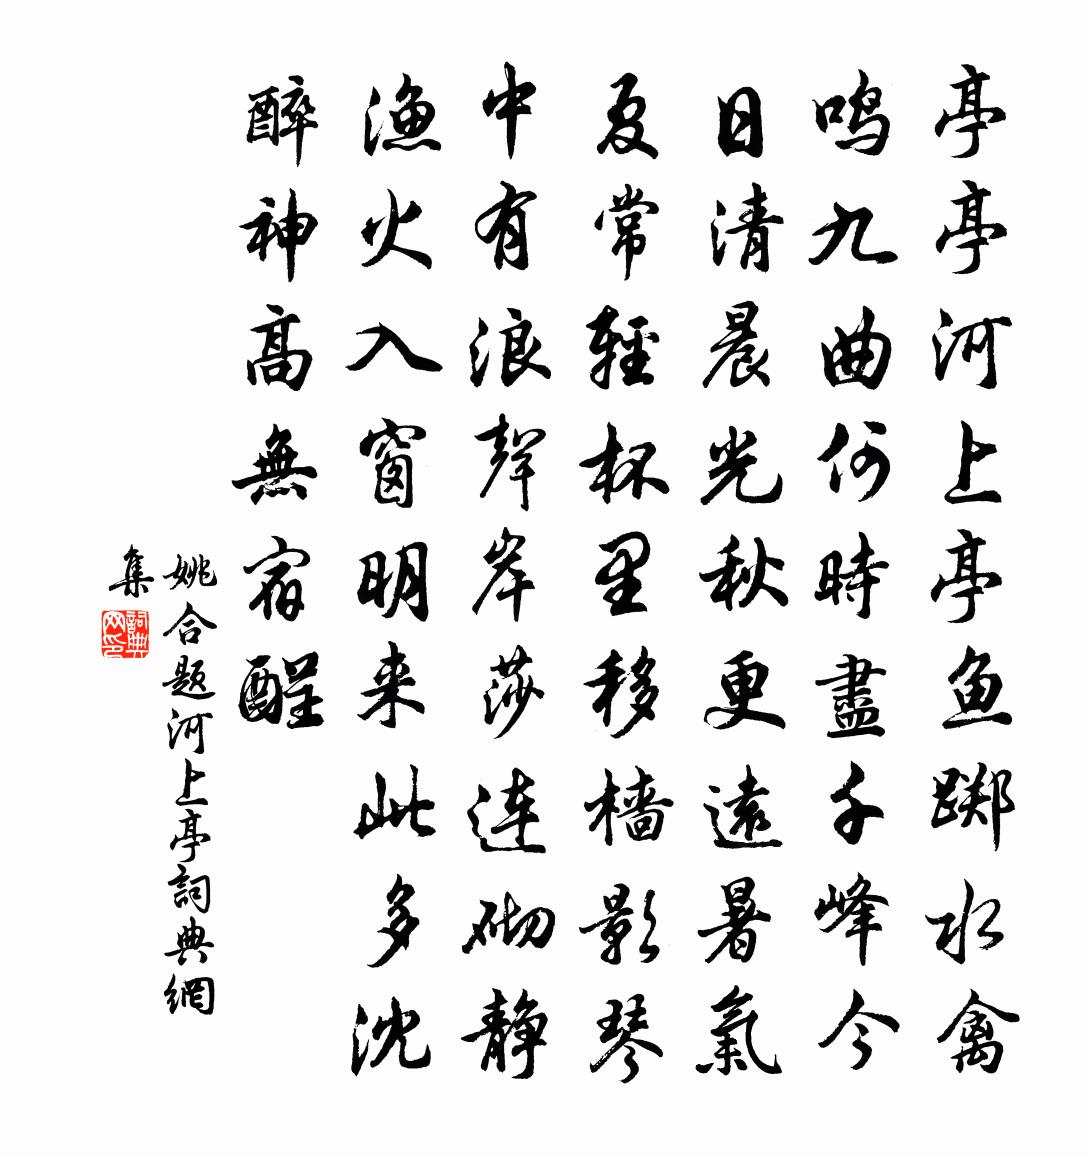 亭亭河上亭鱼踯水禽
鸣九曲何时盡千峰今
日清晨光秋更遠暑氣
夏常輕杯里移檣影琴
中有浪聲岸莎連砌静
漁火入窗明来此多沈
醉神高無宿醒
姚合题河上亭詞典網
集
詞典网印